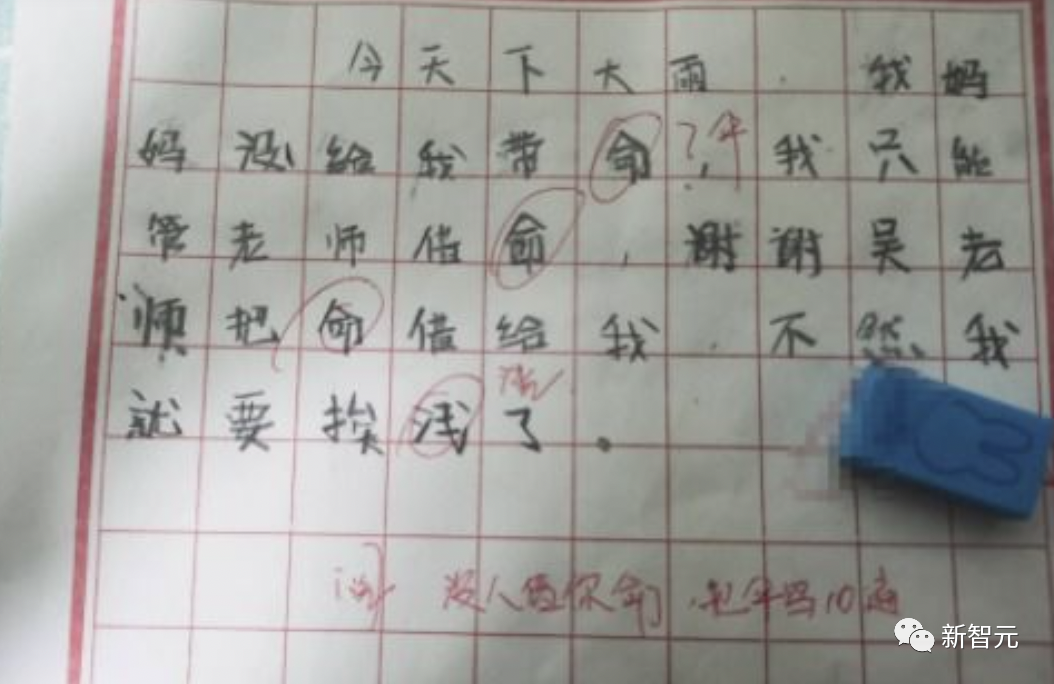 今天下大雨.我妈
妈没给我带命,我只能
?伞
管老师借命,谢谢吴老
师把命借给我.不然我
就要挨浅了。
没人
10遍
新智元